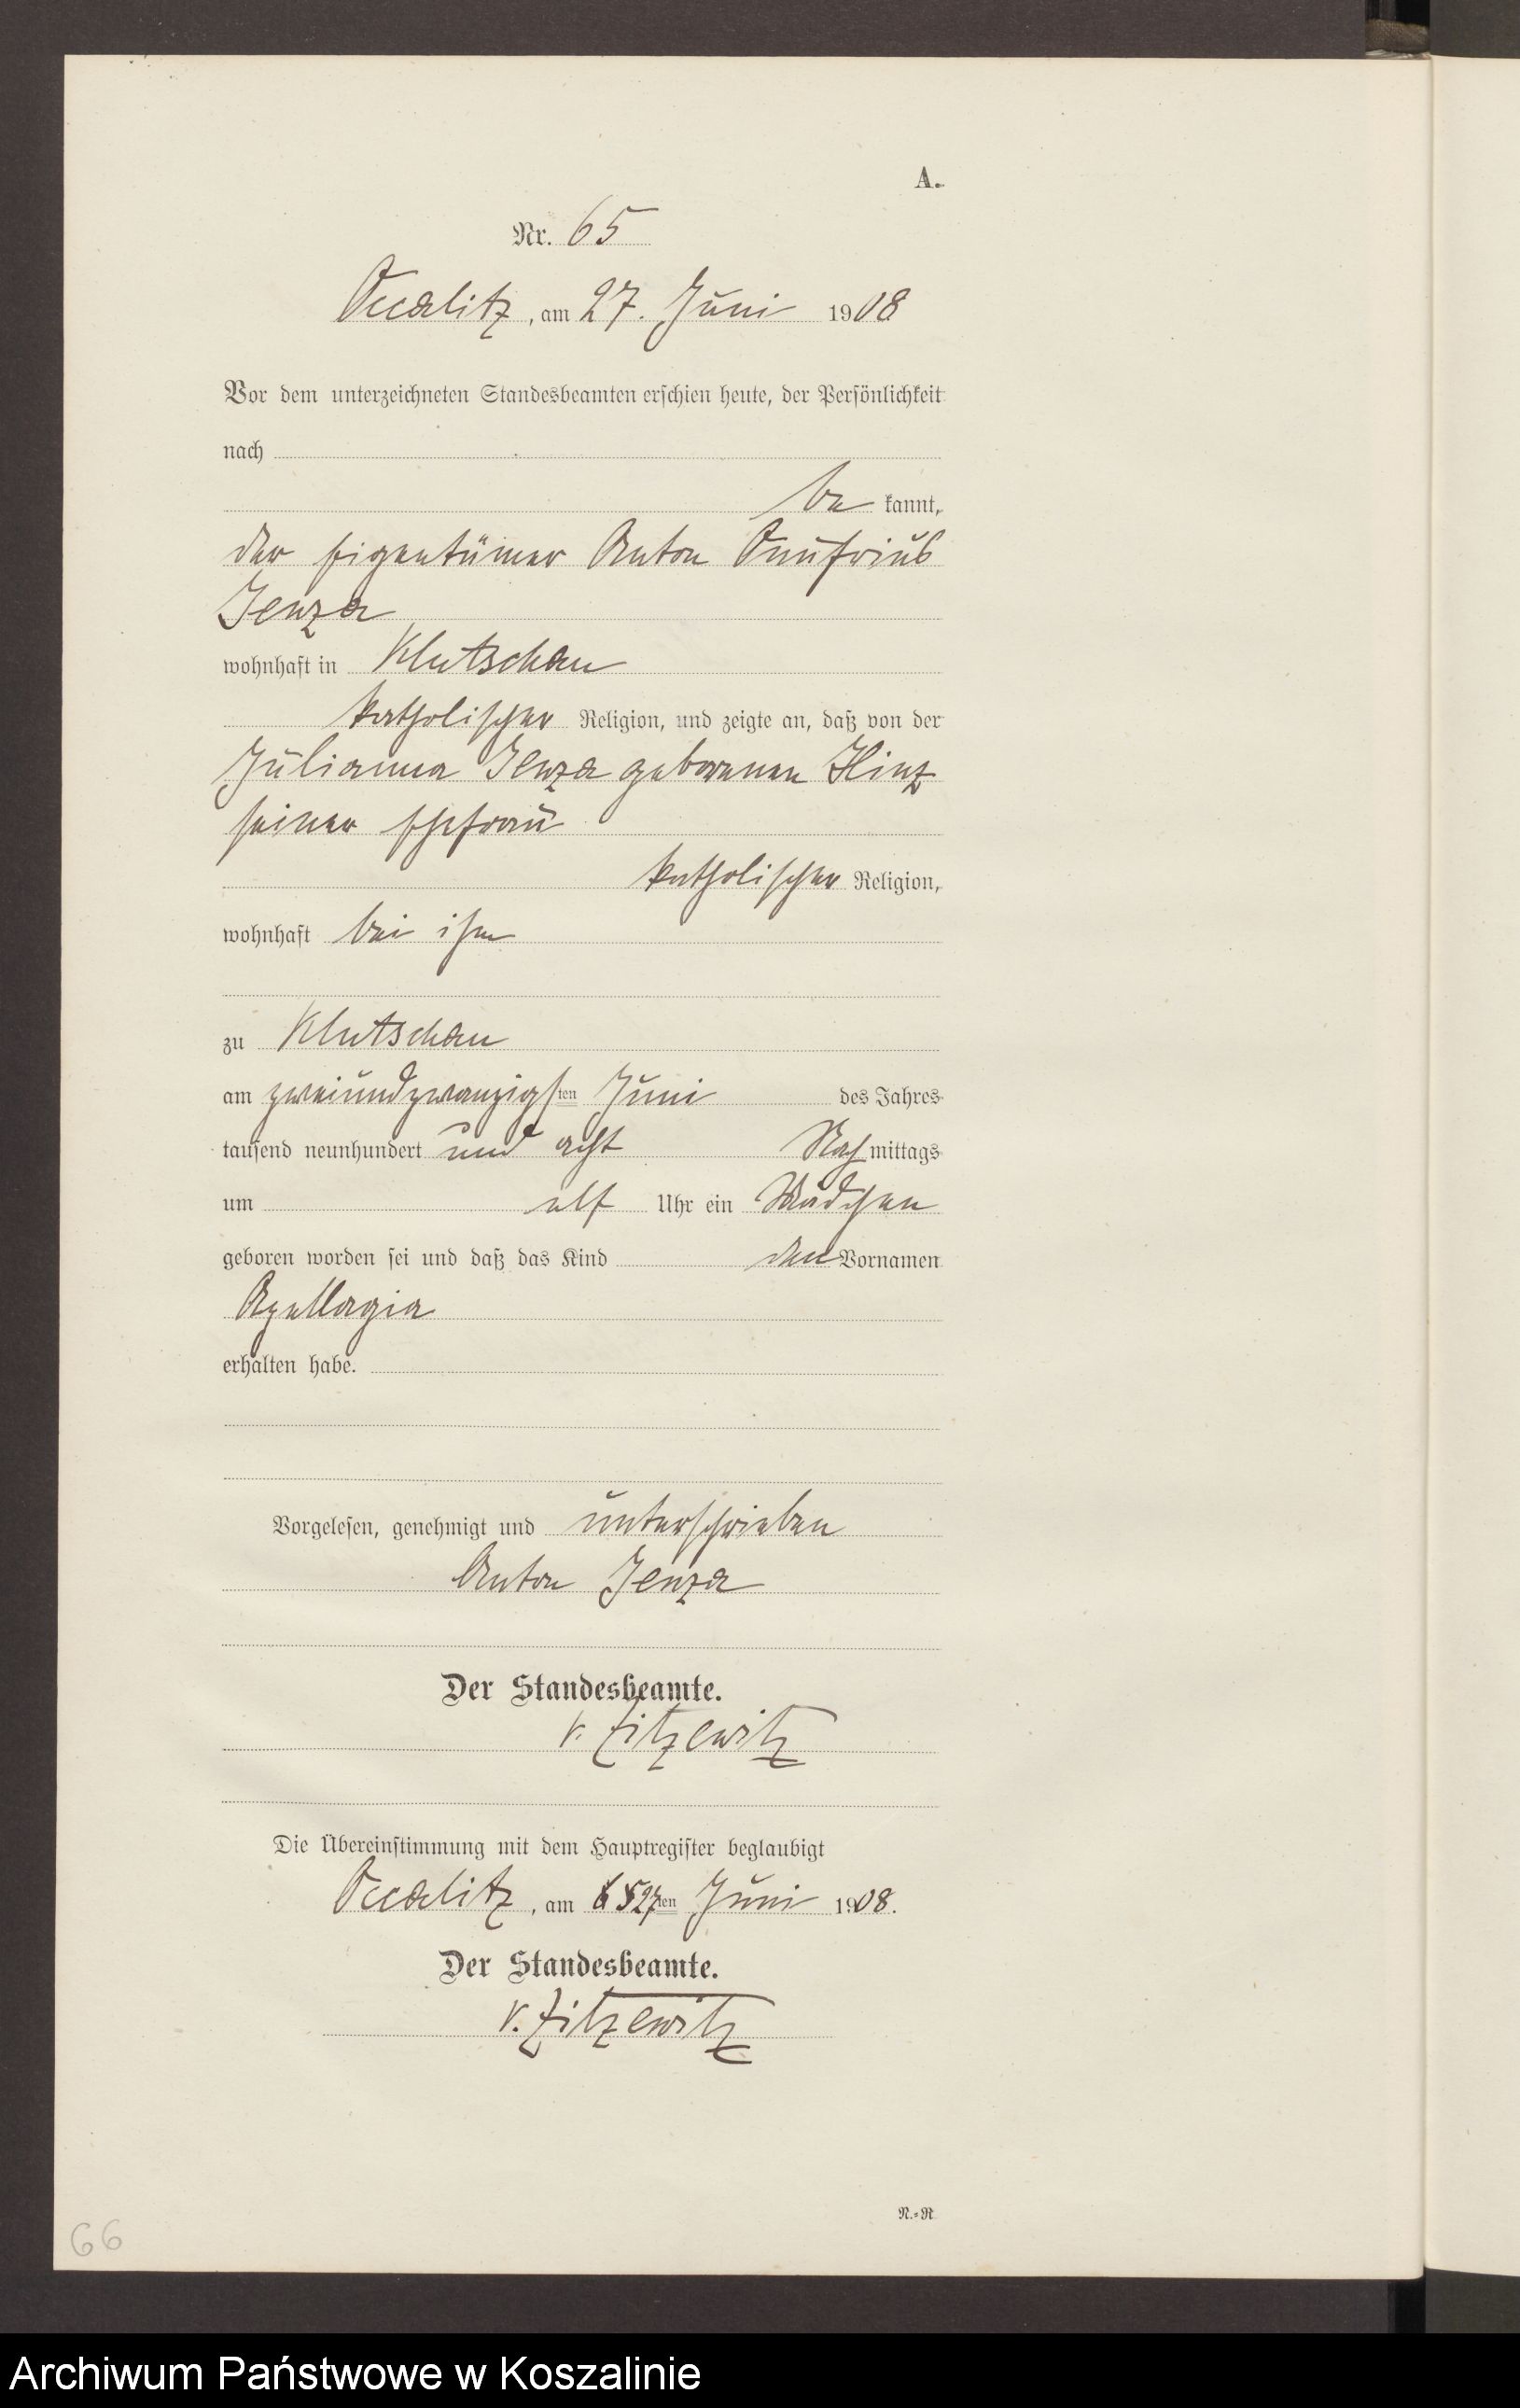 A.
Nr. 65
Occalitz, am 27. Juni 1908
Vor dem unterzeichneten Standesbeamten erschien heute, der Persönlichkeit
nach
be kannt,
der Eigentümer Anton Onufrius
Jenza
wohnhaft in Klutschau
katholischer Religion, und zeigte an, daß von der
Julianna Jenza geborenen Hinz
seiner Ehefrau
katholischer Religion,
wohnhaft bei ihm
zu Klutschau
am zweiundzwanzigsten Juni des Jahres
tausend neunhundert und acht Nachmittags
um elf Uhr ein Mädchen
geboren worden sei und daß das Kind den Vornamen
erhalten habe.
Vorgelesen, genehmigt und unterschrieben
Anton Jenza
Der Standesbeamte.
v. Zitzewitz
Die Übereinstimmung mit dem Hauptregister beglaubigt
Occalitz, am 27ten Juni 1908.
Der Standesbeamte.
v. Zitzewitz
N.=R.
66
Archiwum Państwowe w Koszalinie